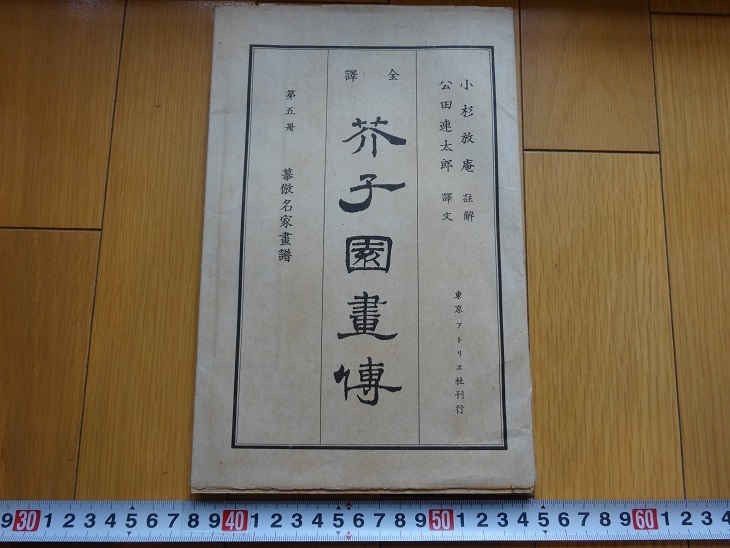 小杉放庵 註解
公田連太郎 譯文
東京 アトリヱ社刊行
全譯
芥子園畫傳
第五冊 摹倣名家畫譜
9 30 1 2 3 4 5 6 7 8 9 40 1 2 3 4 5 6 7 8 9 50 1 2 3 4 5 6 7 8 9 60 1 2 3 4